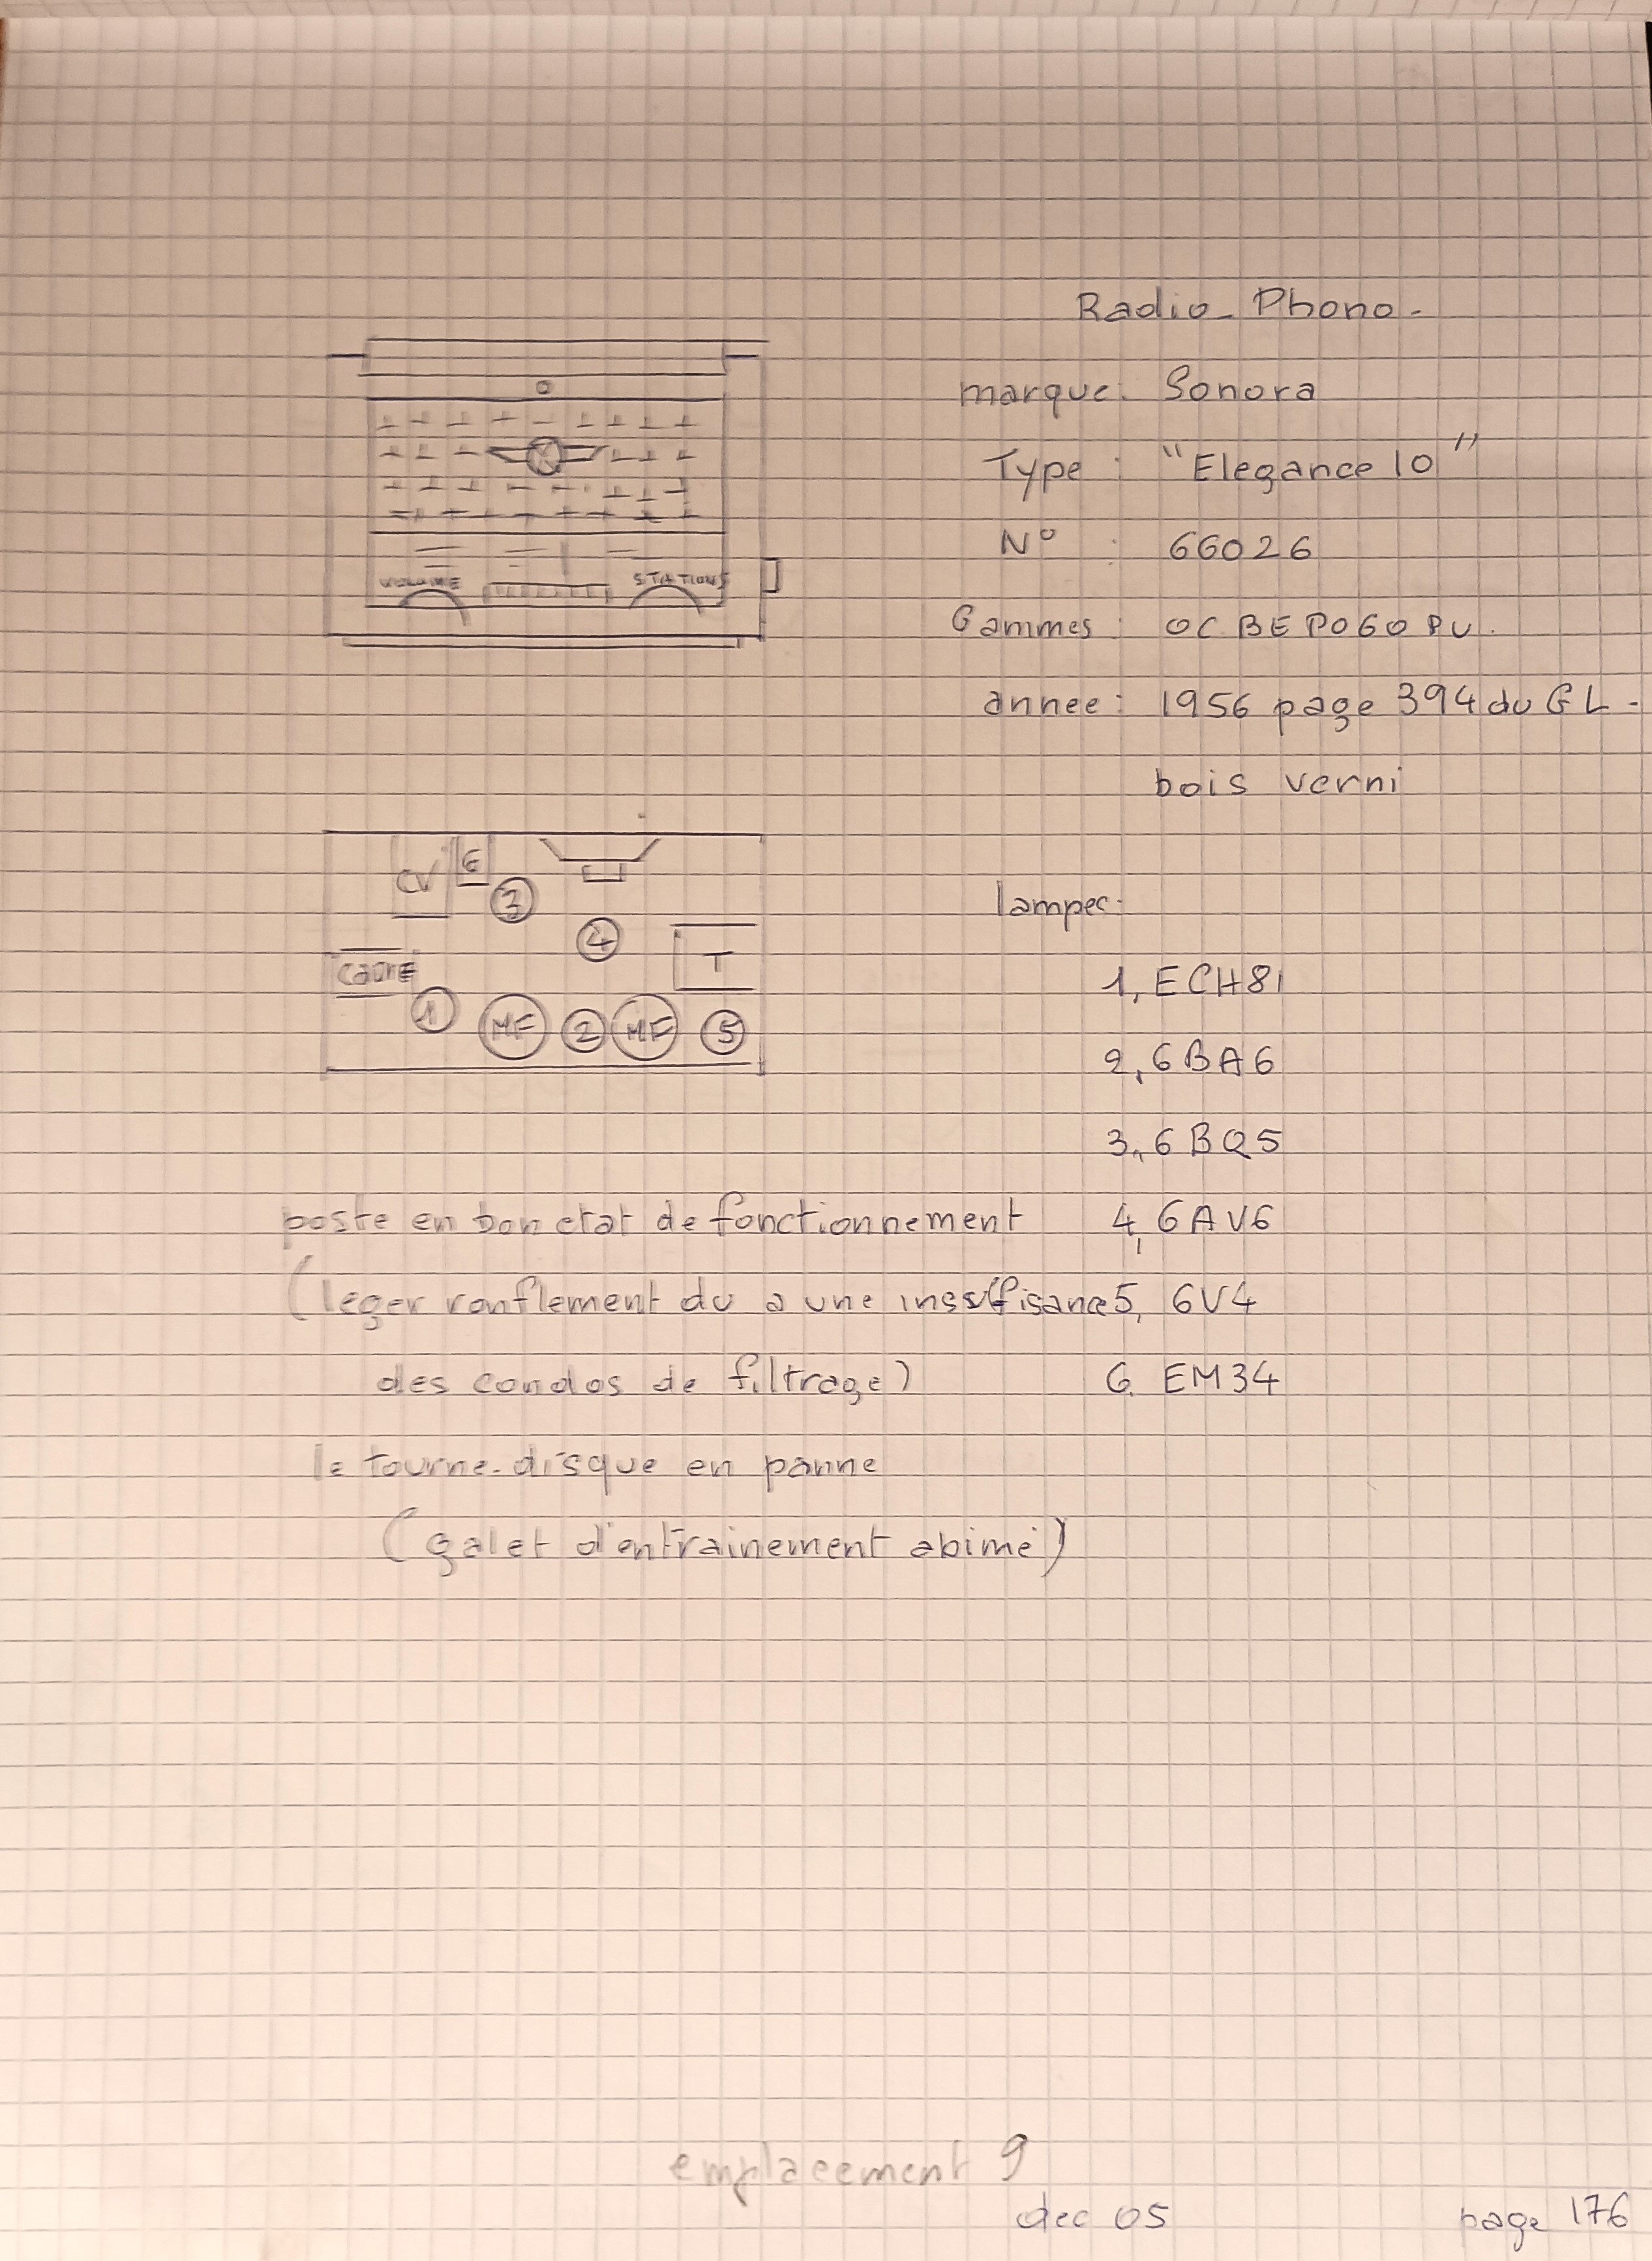 Radio_ Phono-
marque: Sonora
Type : "Elegance 10"
N° : 66026
Gammes : OC BE PO GO PU.
annee: 1956 page 394 du GL-
bois verni
VOLUME STATIONS
CV 6
3
4
T
CADRE
1 MF 2 MF 5
lampes:
1, ECH81
2, 6BA6
3, 6BQ5
4, 6AV6
5, 6V4
6. EM34
poste en bon etat de fonctionnement
(leger ronflement du a une insuffisance
des condos de filtrage)
le tourne-disque en panne
(galet d'entrainement abimé)
emplacement 9
dec 05
page 176